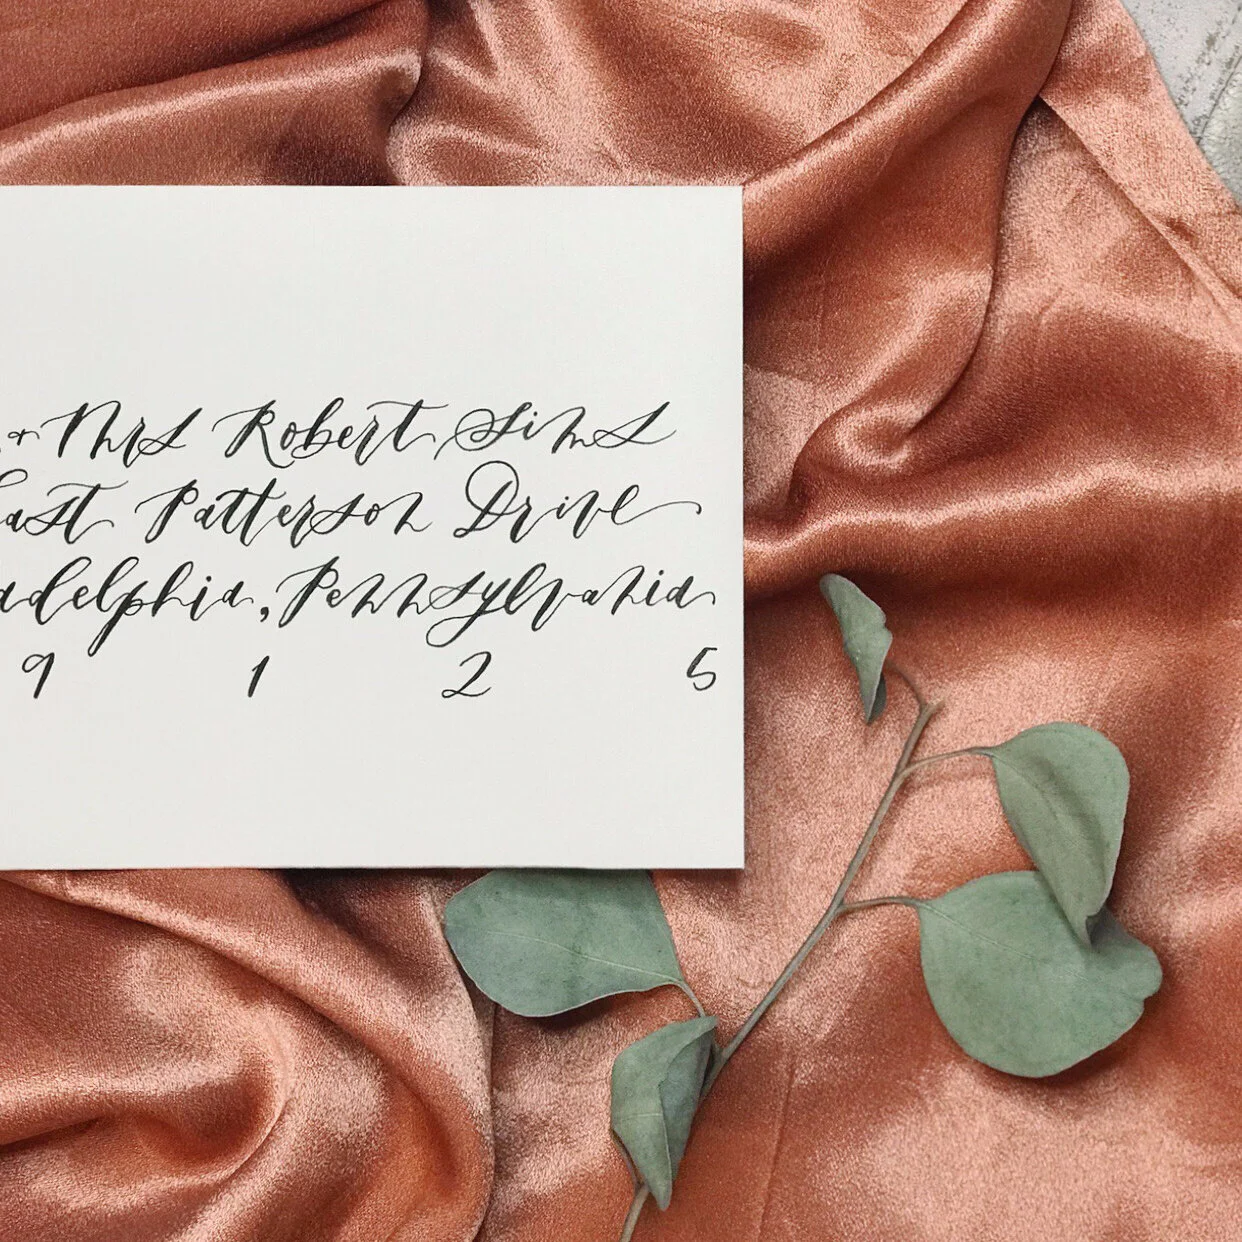 + Mrs Robert Sims
East Patterson Drive
adelphia, Pennsylvania
9 1 2 5